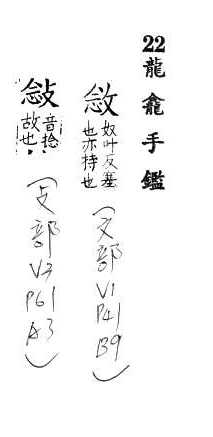 22龍龕手鑑
敜奴叶反塞也亦持也(文部V1P41B9)
敜音捻故也(支部V3P61A3)